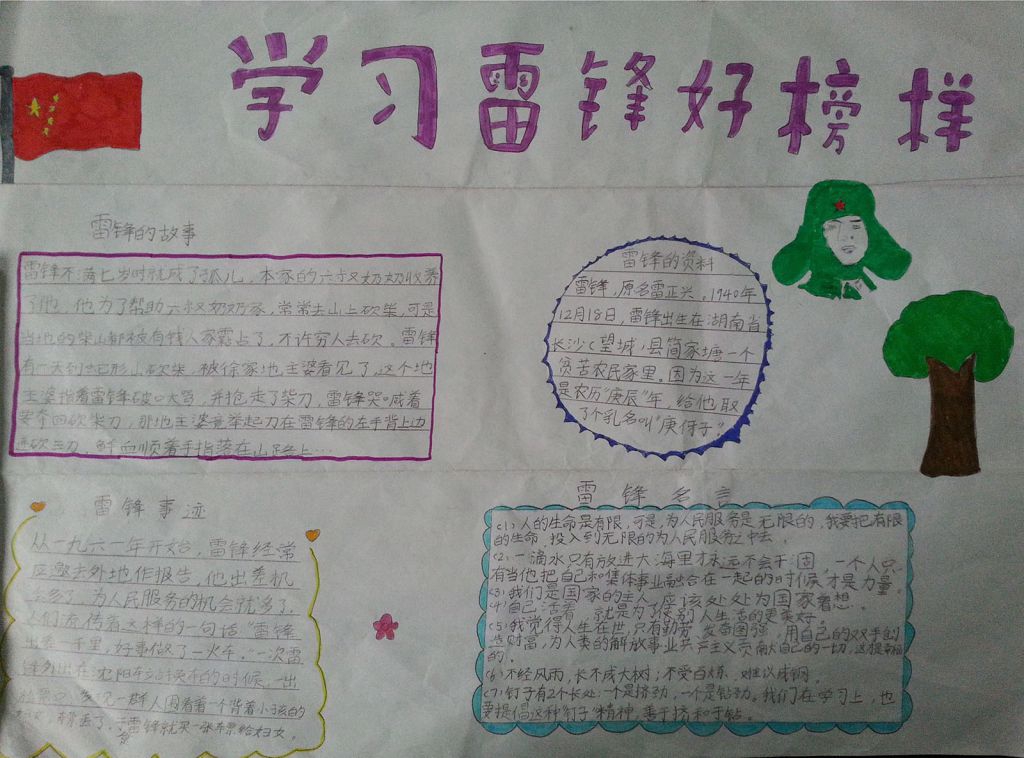 学习雷锋好榜样
雷锋的故事
雷锋不满七岁时就成了孤儿,本家的六叔奶奶收养
了他。他为了帮助六叔奶奶家,常常去山上砍柴,可是
当地的柴山都被有钱人家霸占了,不许穷人去砍。雷锋
有一天到 形山砍柴,被徐家地主婆看见了,这个地
主婆指着雷锋破口大骂,并抢走了柴刀,雷锋哭喊着
要夺回砍柴刀,那地主婆竟举起刀在雷锋的左手背上
连砍三刀,鲜血顺着手指落在山路上…
雷锋的资料
雷锋,原名雷正兴。1940年
12月18日,雷锋出生在湖南省
长沙(望城)县简家塘一个
贫苦农民家里。因为这一年
是农历"庚辰"年,给他取
了个乳名叫"庚伢子"。
雷锋事迹
从一九六一年开始,雷锋经常
应邀去外地作报告,他出差机
会多了,为人民服务的机会就多了,
人们流传着这样的一句话:"雷锋
出差一千里,好事做了一火车。"一次雷
锋外出在沈阳车站换车的时候,一出
发现一群人围着一个背着小孩的
雷锋就买一张车票给妇女。
雷锋名言
(1)、人的生命是有限,可是,为人民服务是无限的,我要把有限
的生命,投入到无限的为人民服务之中去。
(2)、一滴水只有放进大海里才永远不会干涸,一个人只
有当他把自己和集体事业融合在一起的时候才是力量。
(3)、我们是国家的主人,应该处处为国家着想。
(4)自己活着,就是为了使别人生活的更美好。
(5)、我觉得人生在世,只有勤劳,发奋图强,用自己的双手创
造财富,为人类的解放事业共产主义贡献自己的一切,这是幸福
的。
(6)、不经风雨,长不成大树;不受百炼,难以成钢。
(7)、钉子有2个长处:一个是挤劲,一个是钻劲。我们在学习上,也
要提倡这种"钉子"精神,善于挤和于钻。